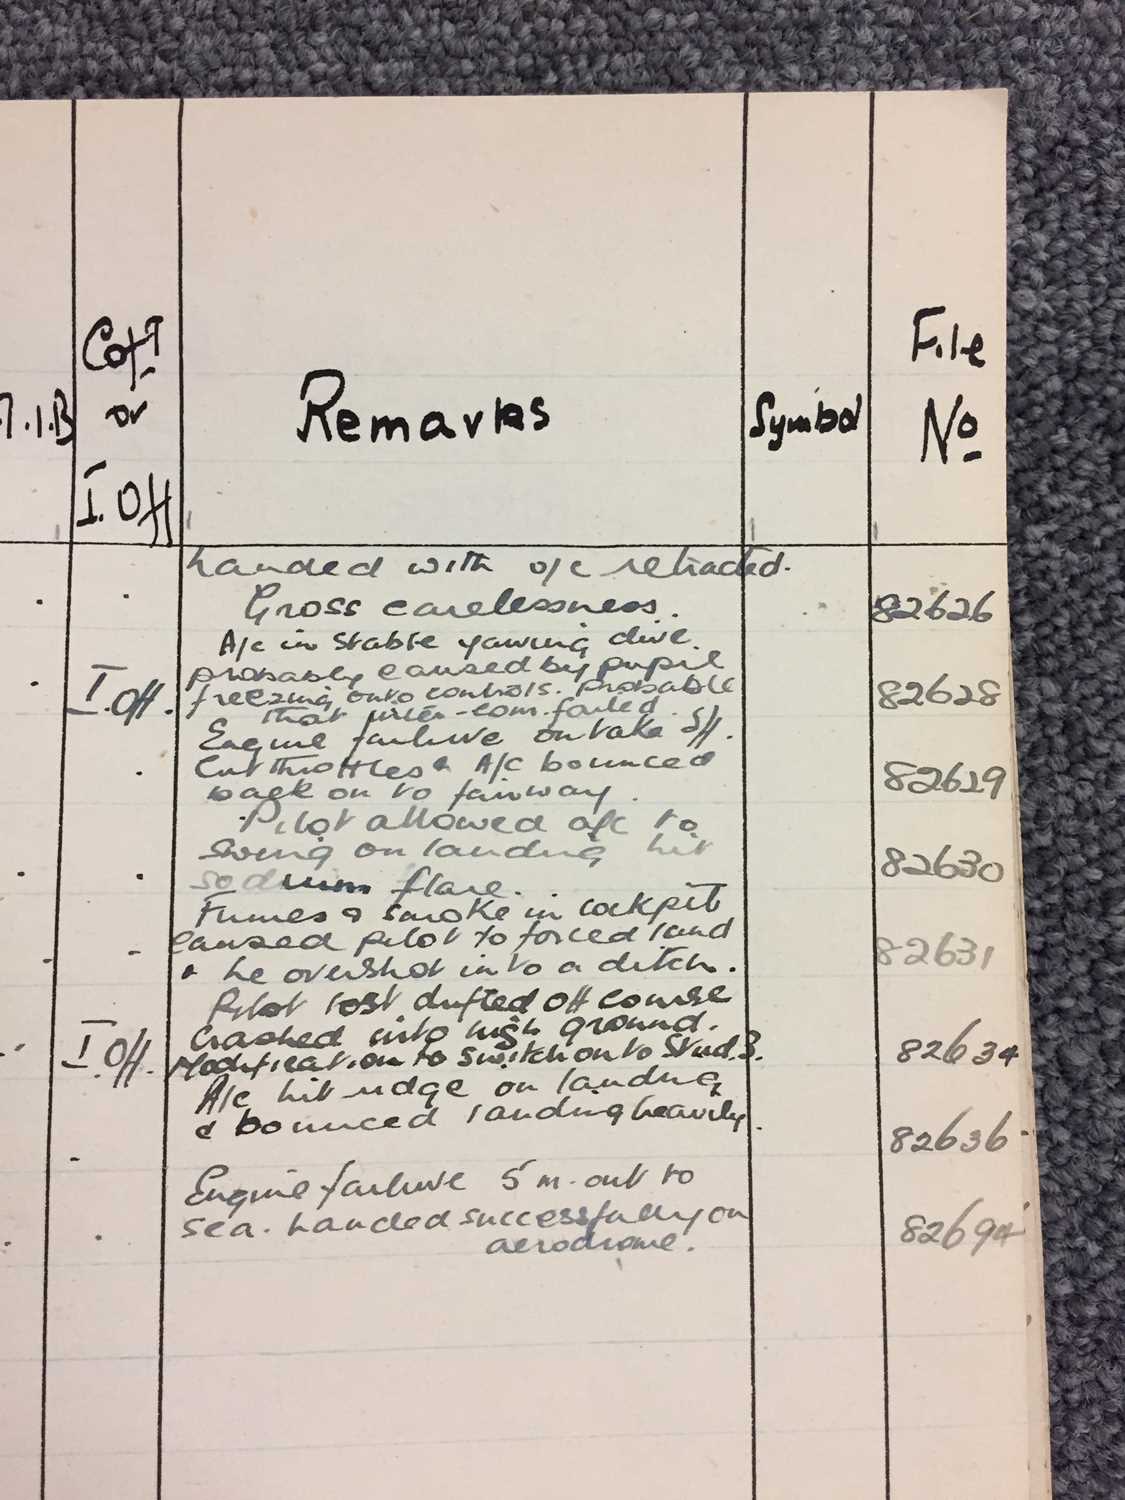 Cott
or
I.Off
Remarks
Symbol
File
No
Landed with o/c retracted.
Gross carelessness.
82626
A/c in stable yawing dive.
probably caused by pupil
freezing onto controls. Probable
that inter-com. failed.
I.Off.
82628
Engine failure on take off.
Cut throttles & A/c bounced
back on to fairway.
82629
Pilot allowed a/c to
swing on landing hit
sodium flare.
82630
Fumes & smoke in cockpit
caused pilot to forced land
& he overshot into a ditch.
82631
Pilot lost drifted off course
crashed into high ground.
Modification to switch on to Stud. 3.
I.Off.
82634
A/c hit ridge on landing
& bounced landing heavily.
82636
Engine failure 5 m. out to
sea. Landed successfully on
aerodrome.
82694